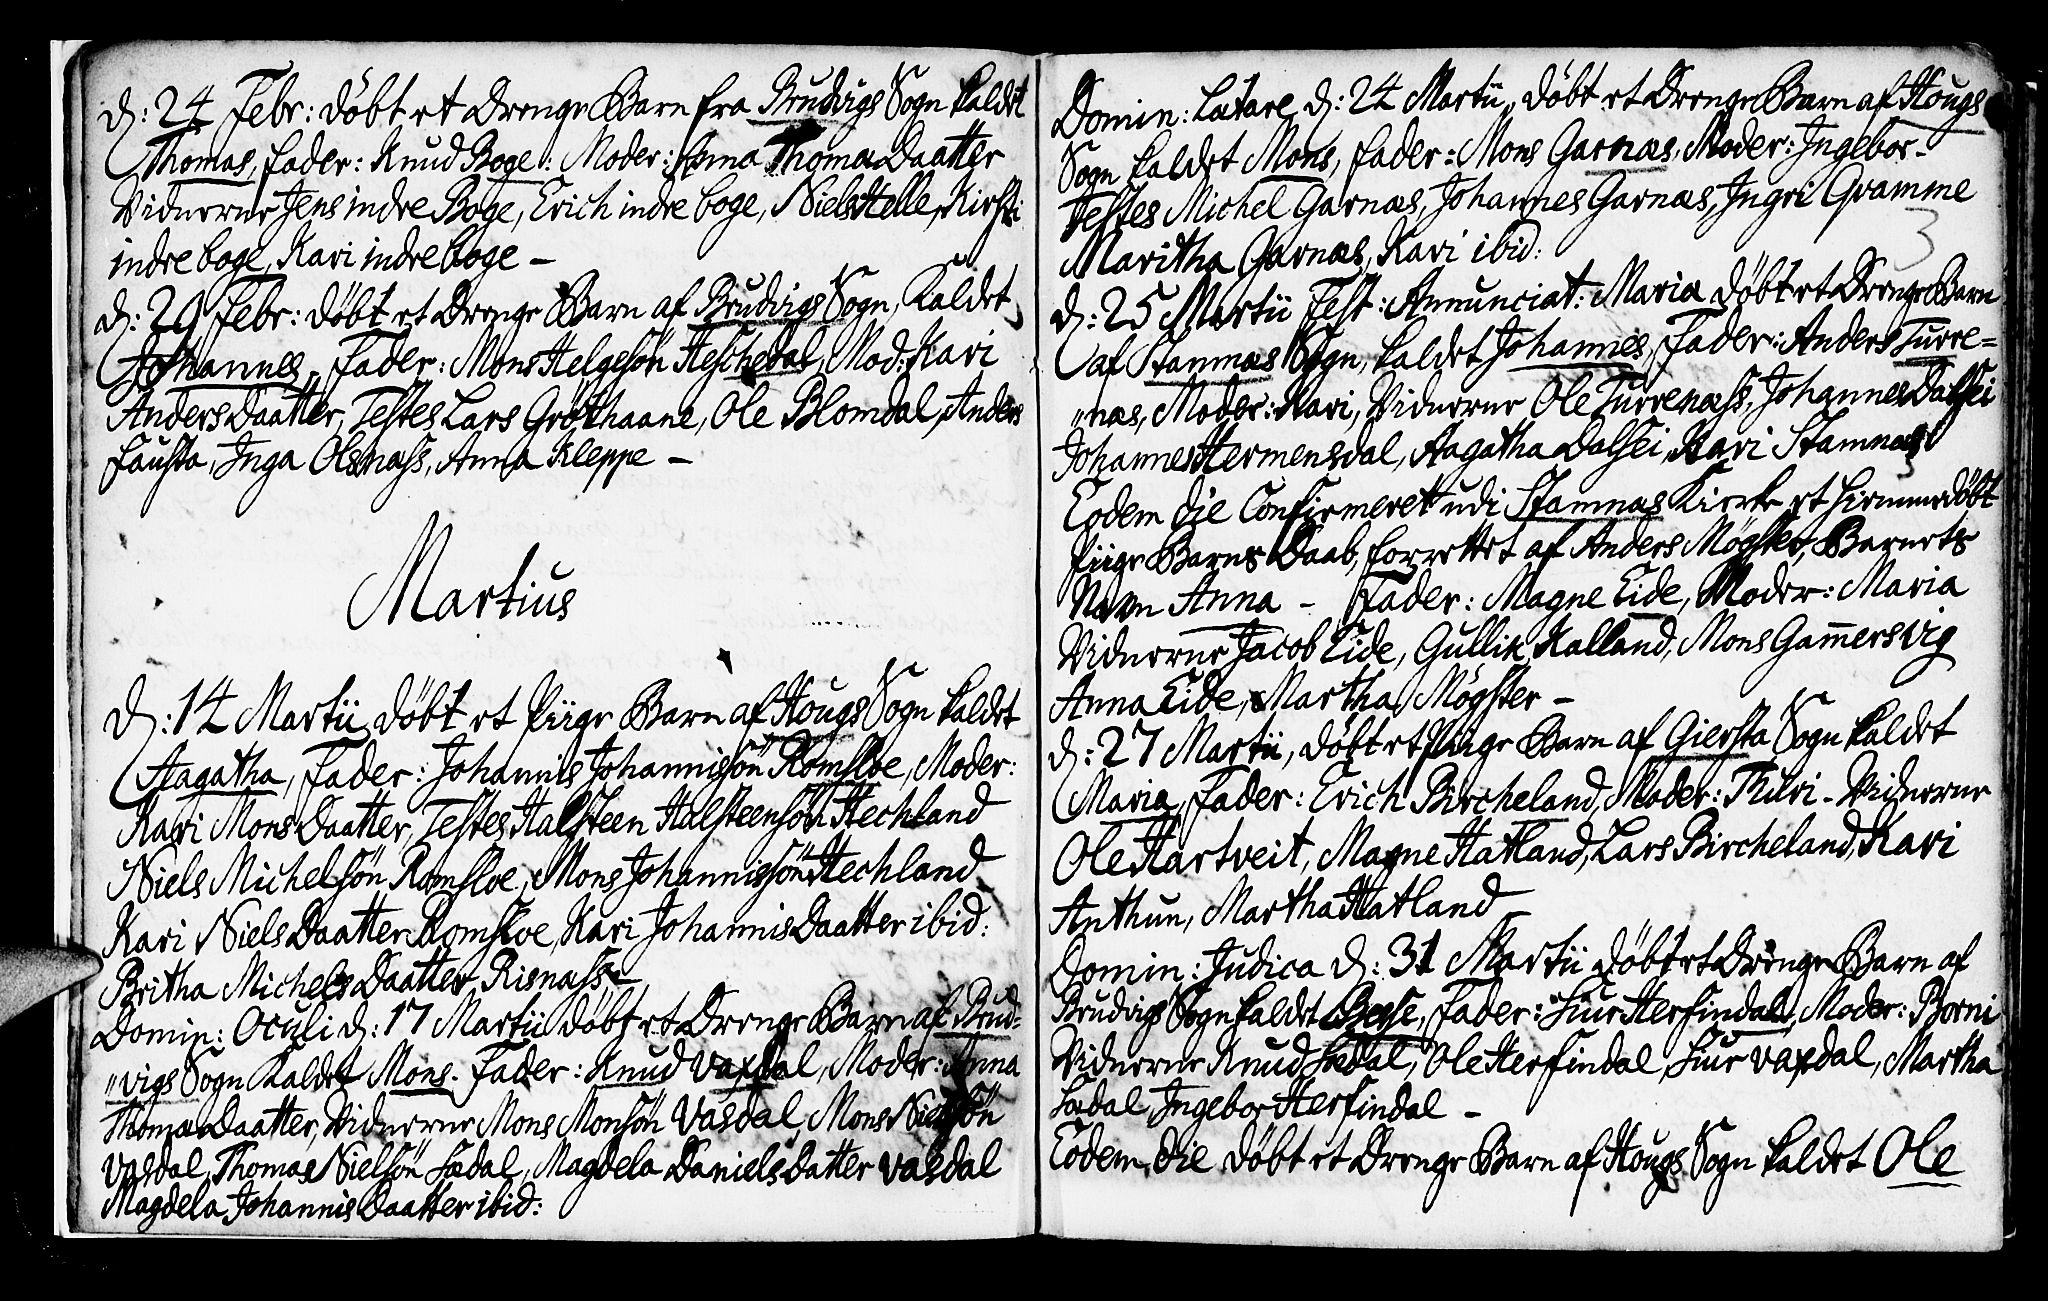 d: 24 Febr: döbt et Drenge Barn fra Brudvigs Sogn kaldet
Thomas, Fader: Knud Boge: Moder: Anna ThomæDaatter
Vidnerne Jens indre Boge, Erich indre boge, Niels Helle, Kirsti
indre boge, Kari indre boge –
d: 29 Febr: döbt et Drenge Barn af Brudvigs Sogn, Kaldet
Johannes, Fader: Mons Helgesön Heschedal, Mod: Kari
AndersDaatter, Testes Lars Gröthaane, Ole Blomdal, Anders
Fausta, Inga Olsnass, Anna Kleppe –
Martius
d: 14 Martii döbt et Piige Barn af Hougs Sogn kaldet
Aagatha, Fader: Johannis Johannissön Romsloe, Moder:
Kari MonsDaatter, Testes Halsteen Halsteensön Hechland
Niels Michelsön Romsloe, Mons Johannissön Hechland
Kari NielsDaatter Romsloe, Kari JohannisDaatter ibid:
Britha MichelsDaatter Risnass –
Domin: Oculi d: 17 Martii döbt et Drenge Barn af Brud=
„vigs Sogn Kaldet Mons. Fader: Knud Vaxdal, Moder: Anna
ThomæDaatter, Vidnerne Mons Monsön Vasdal, Mons Nielsön
Vasdal, Thomas Nielsön Sædal, Magdela Danielsdatter Vasdal
Magdela JohannisDaatter ibid:
Domin: Lætare d: 24 Martii, döbt et Drenge Barn af Hougs
Sogn kaldet Mons, Fader: Mons Garnæs, Moder: Ingebor –
Testes Michel Garnæs, Johannes Garnæs, Ingri Gramme
Maritha Garnæs, Kari ibid:
3
d: 25 Martii Fest: Annunciat: Maria döbt et Drenge Barn
af Stamnæs Sogn, kaldet Johannes, Fader: Anders Turre=
„næs, Moder: Kari, Vidnerne Ole Turrenæss, Johannes Dalsei
Johannes Hermensdal, Aagatha Dalsei, Kari Stamnæs
Eodem die Confirmeret udi Stamnæs Kirke et hiemmedöbt
Piige Barns Daab, forrettet af Anders Mögster, Barnets
Navn Anna – Fader: Magne Eide, Moder: Maria
Vidnerne Jacob Eide, Gullik Kalland, Mons Gamersvig
Anna Eide, Martha Mögster –
d: 27 Martii, döbt et Piige Barn af Giersta Sogn kaldet
Maria, Fader: Erich Bircheland, Moder: Thuri – Vidnerne
Ole Hartveit, Magne Hatland, Lars Bircheland, Kari
Anthun, Martha Hatland
Domin: Judica d: 31 Martii döbt et Drenge Barn af
Brudvigs Sogn kaldet Besse, Fader: Siur Herfindal, Moder: Borni
Vidnerne Knud Sædal, Ole Herfindal, Siur Vaxdal, Martha
Sædal Ingebor Herfindal –
Eodem die döbt et Drenge Barn af Hougs Sogn kaldet Ole